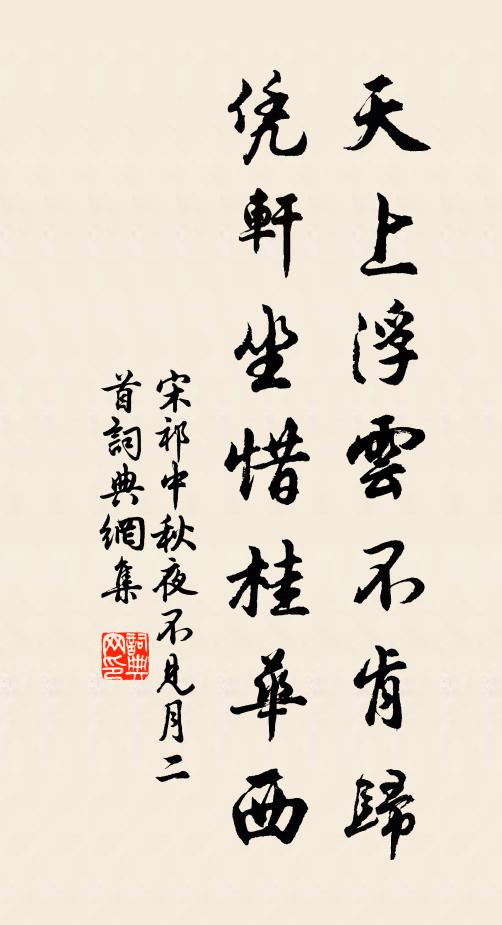 天上浮雲不肯歸
凭軒坐惜桂華西
宋祁中秋夜不見月二
首詞典網集
詞典
网印